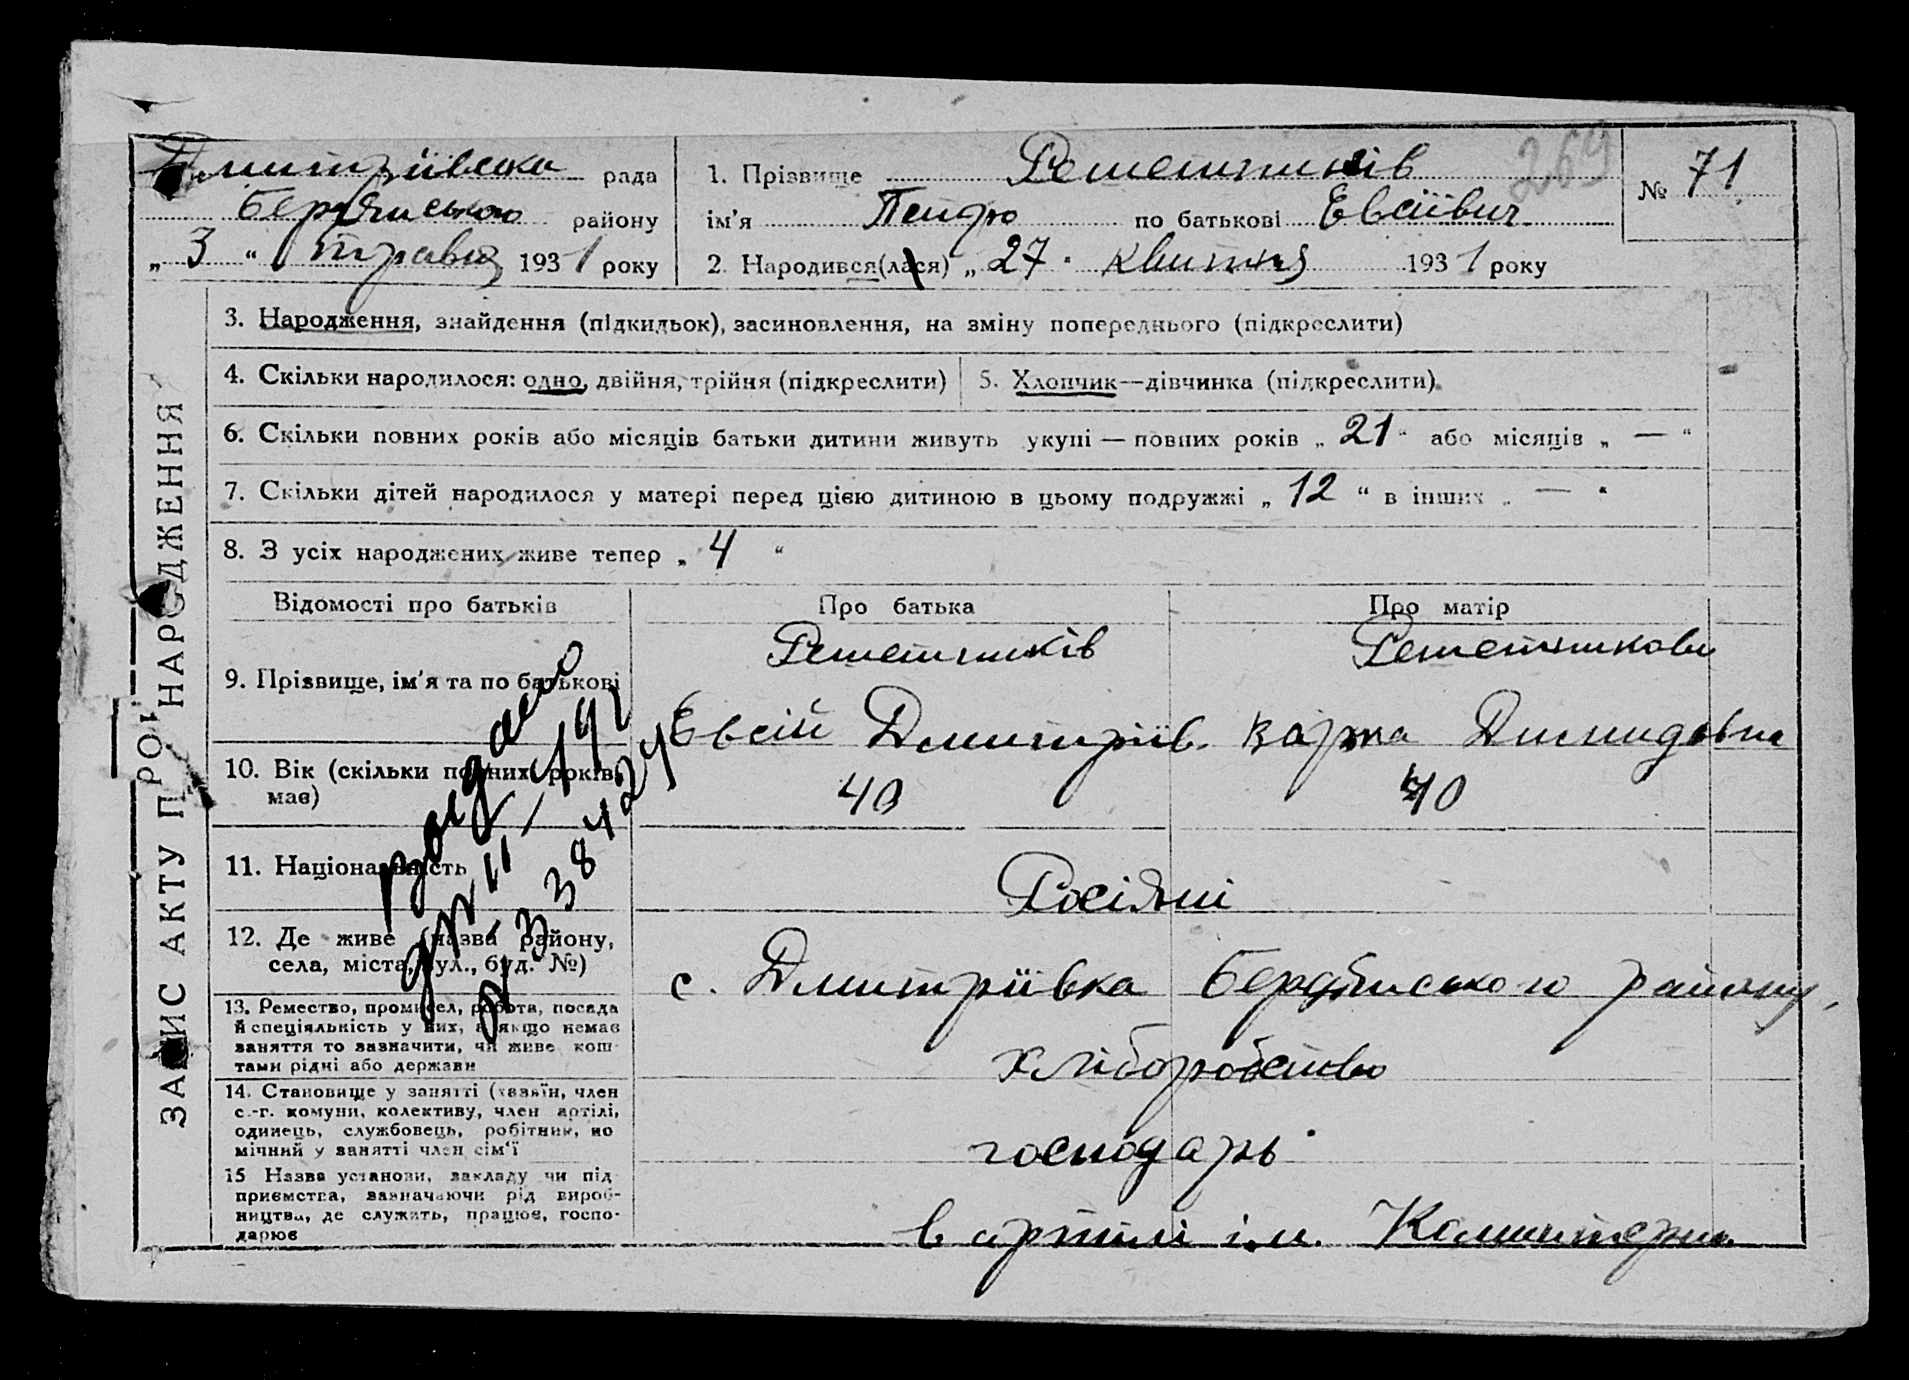 269
Дмитріївська рада
Бердянського району
„ 3 “ травня 1931 року
1. Прізвище Решетników
ім'я Петро по батькові Евсіївич
2. Народився(лася) „ 27 “ квітня 1931 року
№ 71
ЗАПИС АКТУ ПРО НАРОДЖЕННЯ
3. Народження, знайдення (підкидьок), засиновлення, на зміну попереднього (підкреслити)
4. Скільки народилося: одно, двійня, трійня (підкреслити)
5. Хлопчик—дівчинка (підкреслити)
6. Скільки повних років або місяців батьки дитини живуть укупі — повних років „ 21 “ або місяців „ — “
7. Скільки дітей народилося у матері перед цією дитиною в цьому подружжі „ 12 “ в інших „ — “
8. З усіх народжених живе тепер „ 4 “
Відомості про батьків Про батька Про матір
9. Прізвище, ім'я та по батькові
Решетників Решетникова
Евсій Дмитріїв. Димидовна
10. Вік (скільки повних років має)
40 40
11. Національність
Росіяні
12. Де живе (назва району,
села, міста, вул., буд. №)
с. Дмитріївка Бердянського району,
13. Ремество, промисел, робота, посада
й спеціяльність у них, а якщо немає
заняття то зазначити, чи живе кош-
тами рідні або держави
хліборобство
14. Становище у занятті (хазяїн, член
с.-г. комуни, колективу, член артілі,
одинець, службовець, робітник, по
мічний у занятті член сім'ї
господарь
15 Назва установи, закладу чи під
приємства, зазначаючи рід вироб-
ництва, де служить, працює, госпо-
дарює
в артілі ім. Комінтерна
384424